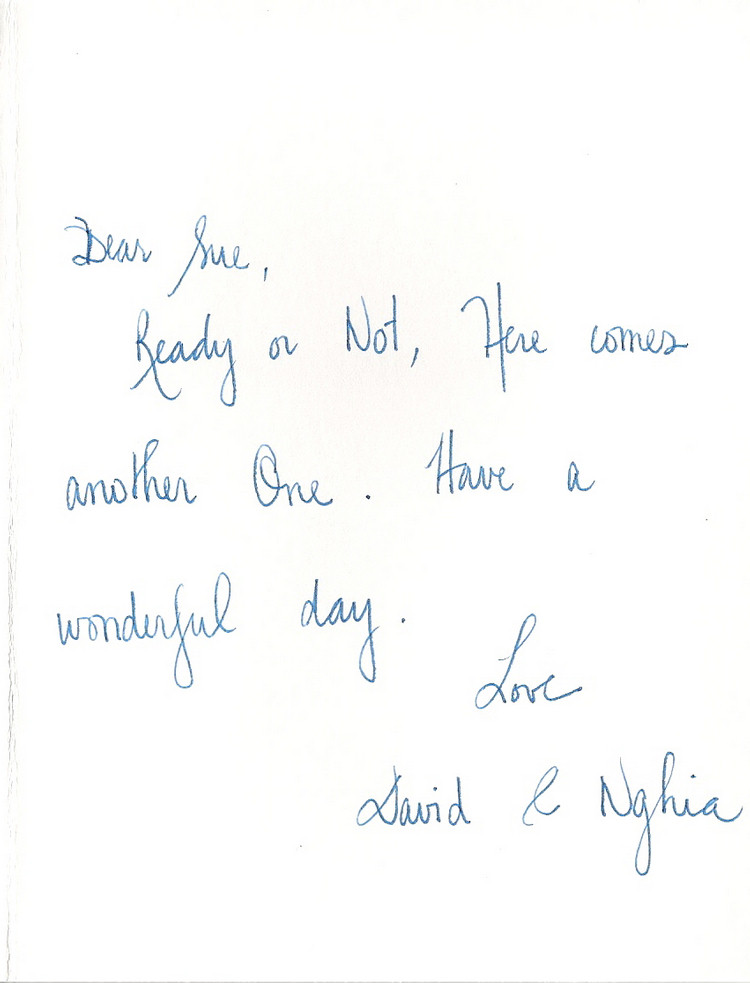 Dear Sue,
Ready or Not, Here comes
another One. Have a
wonderful day.
Love
David & Nghia